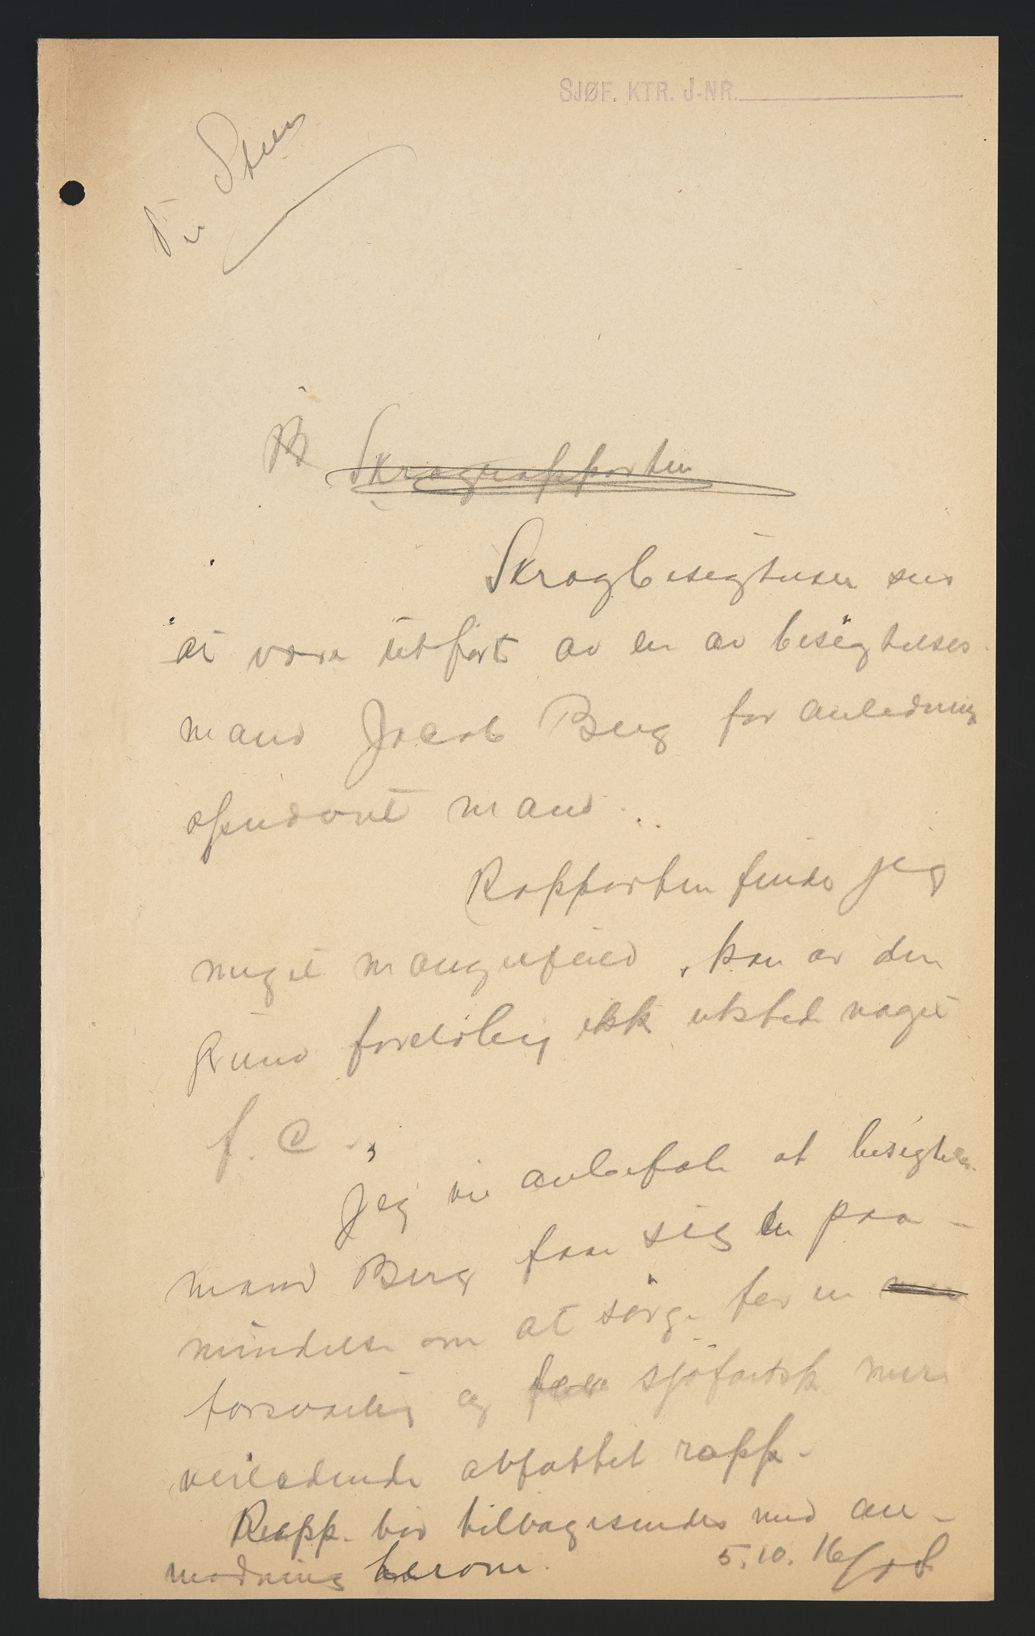 SJØF. KTR. J-NR.
Skrograpporten
Skrogbesigtelsen sees
at være utført av en av besigtelses-
mand Jacob Berg for anledning
opnævnt mand.
Rapporten finder jeg
meget mangelfuld, kan av den
grund foreløbig ikke utstede noget
f. c.,
Jeg vil anbefale at besigtelses-
mand Berg faar sig en paa-
mindelse om at sørge for en
forsvarlig og sjøfartsk mere
veiledende avfattet rapp.
Rapp. bør tilbagesendes med an-
modning herom.
5.10.16